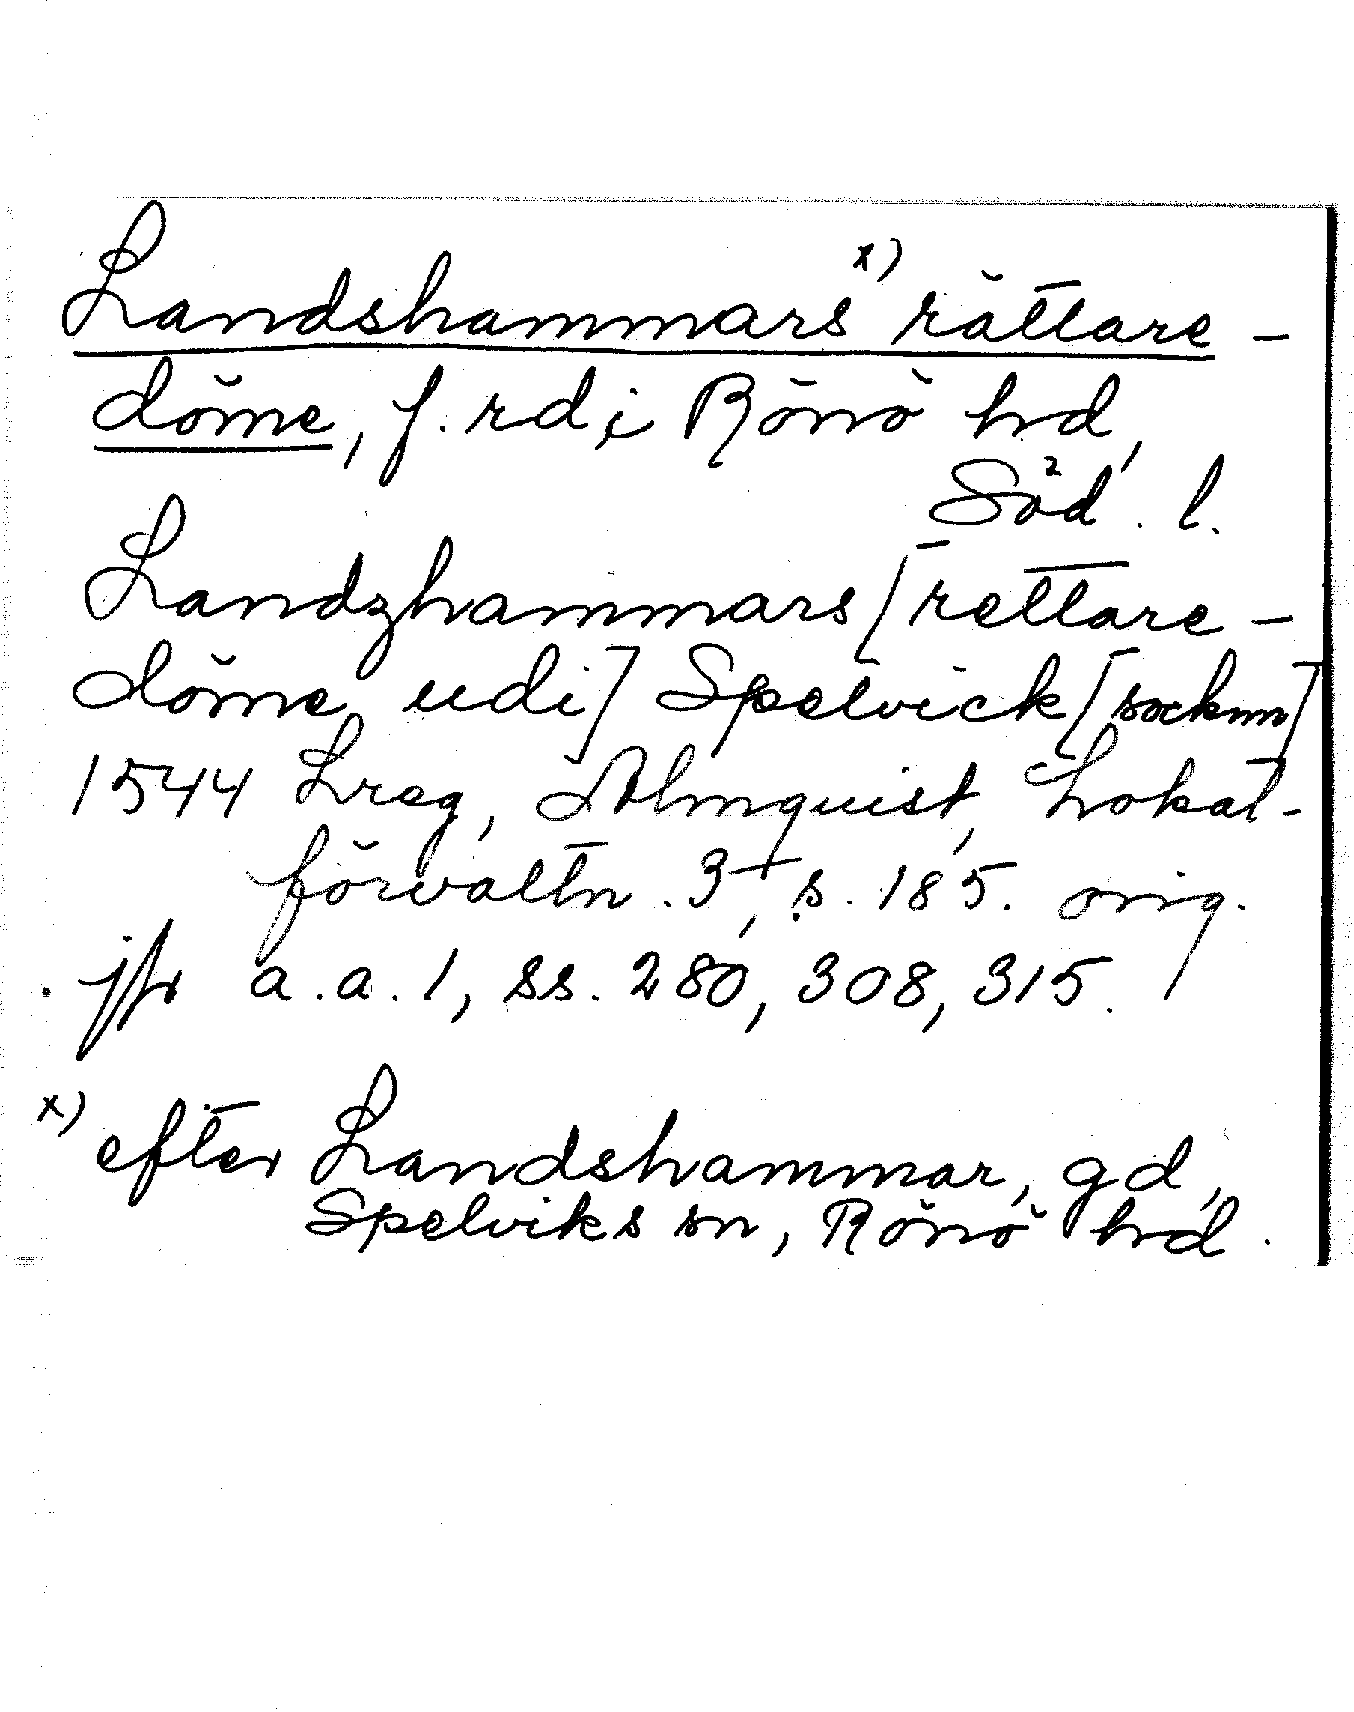 Landshammars x) rättare-
döme, f. rd i Rönö hd,
Söd. l.
Landzhammars [rettare-
döme udi] Spelvick [socknn]
1544 Lreg, Almquist, Lokal-
förvaltn. 3, s. 185. orig.
jfr a.a. 1, ss. 280, 308, 315.
x) efter Landshammar, gd,
Spelviks sn, Rönö hd.